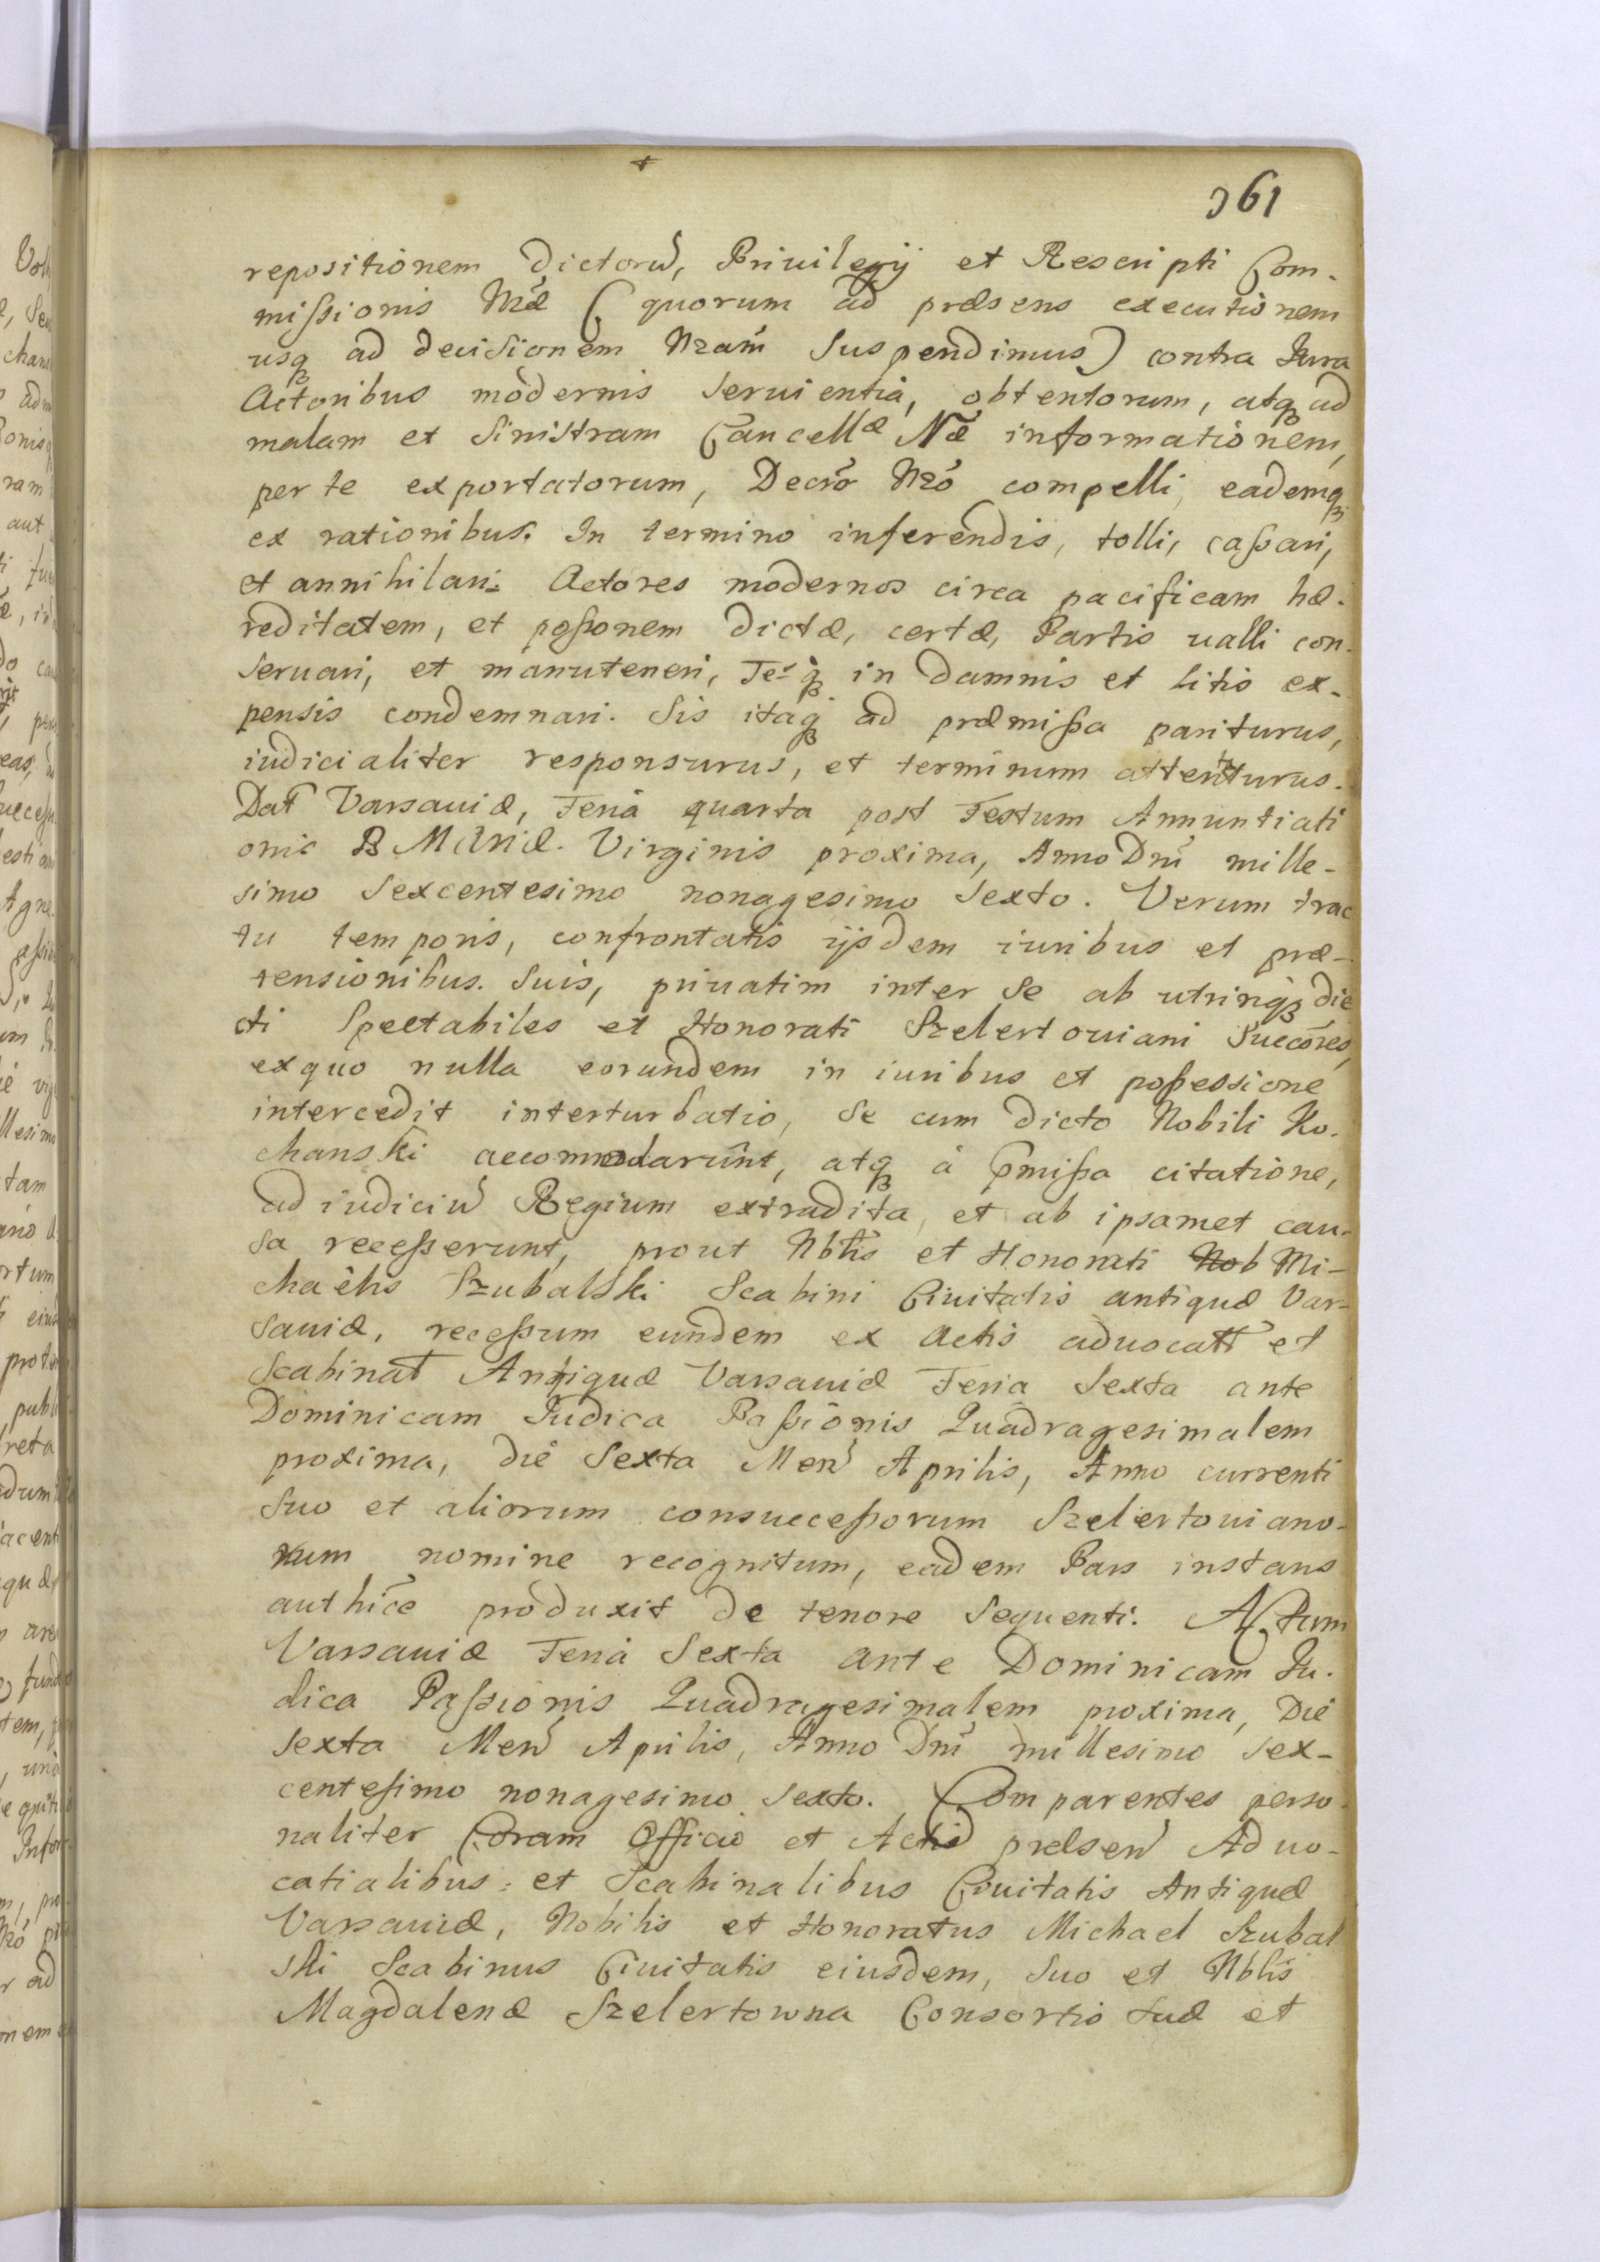 361
repositionem dictorũ, Priuilegij et Rescripti Com-
mißionis Nræ (quorum ad præsens executionem
usq ad decisionem Nram suspendimus) contra Iura
Actoribus modernis seruientia, obtentorum, atq ad
malam et sinistram Cancellæ Næ informationem,
per te exportatorum, Decro Nro compelli, eademq
ex rationibus. In termino inferendis, tolli, caßari,
et annihilari. Actores modernos circa pacificam hæ-
reditatem, et poßonem dictæ, certæ, Partis ualli con-
seruari, et manuteneri, Te q in damnis et litis ex-
pensis condemnari. Sis itaq ad præmißa pariturus,
iudicialiter responsurus, et terminum attenturus.
Dat Varsauiæ, Feria quarta post Festum Annuntiati
onis B Mariæ. Virginis proxima, Anno Dni mille-
simo sexcentesimo nonagesimo sexto. Verum trac
tu temporis, confrontatis ijsdem iuribus et præ-
tensionibus. suis, priuatim inter se ab utrinq die
cti Spectabiles et Honorati Szelertouiani Succores,
exquo nulla eorundem in iuribus et poßessione
intercedit interturbatio, se cum dicto Nobili Ko-
chanski accommodarunt, atq à pmißa citatione,
ad iudiciũ Regium extradita, et ab ipsamet cau-
sa receßerunt, prout Nblis et Honorati Nob Mi-
chaëlis Szubalski Scabini Ciuitatis antiquæ Var-
sauiæ, receßum eundem ex Actis aduocatt et
Scabinat Antiquæ Varsauiæ Feria sexta ante
Dominicam Iudica Paßionis Quadragesimalem
proxima, die sexta Men Aprilis, Anno currenti
suo et aliorum consucceßorum Szelertouiano-
rum nomine recognitum, eadem Pars instans
authice produxit de tenore sequenti. Actum
Varsauiæ Feria sexta ante Dominicam Iu-
dica Paßionis Quadragesimalem proxima, Die
sexta Men Aprilis, Anno Dni millesimo sex-
centesimo nonagesimo sexto. Comparentes perso-
naliter Coram Officio et Actis præsen Aduo-
catialibus: et Scabinalibus Ciuitatis Antiquæ
Varsauiæ, Nobilis et Honoratus Michael Szubal
ski Scabinus Ciuitatis eiusdem, suo et Nblis
Magdalenæ Szelertowna Consortis suæ et